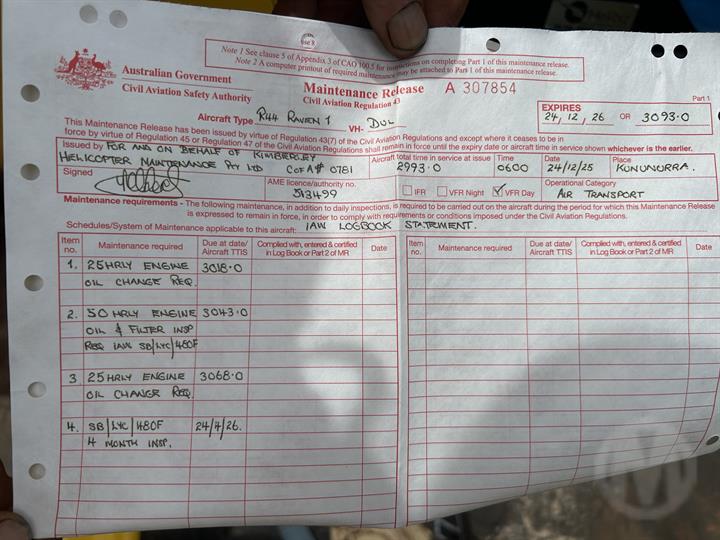 Note 1 See clause 5 of Appendix 3 of CAO 100.5 for instructions on completing Part 1 of this maintenance release.
Note 2 A computer printout of required maintenance may be attached to Part 1 of this maintenance release.
Australian Government
Civil Aviation Safety Authority
Maintenance Release A 307854
Civil Aviation Regulation 43
Part 1
Aircraft Type R44 RAVEN 1 VH- DUL
EXPIRES
24, 12, 26 OR 3093.0
This Maintenance Release has been issued by virtue of Regulation 43(7) of the Civil Aviation Regulations and except where it ceases to be in
force by virtue of Regulation 45 or Regulation 47 of the Civil Aviation Regulations shall remain in force until the expiry date or aircraft time in service shown whichever is the earlier.
Issued by FOR AND ON BEHALF OF KIMBERLEY
HELICOPTER MAINTENANCE PTY LTD C OF A# 0781
Aircraft total time in service at issue
2993.0
Time
0600
Date
24/12/25
Place
KUNUNURRA.
Signed
AME licence/authority no.
513499
IFR VFR Night VFR Day
Operational Category
AIR TRANSPORT
Maintenance requirements - The following maintenance, in addition to daily inspections, is required to be carried out on the aircraft during the period for which this Maintenance Release
is expressed to remain in force, in order to comply with requirements or conditions imposed under the Civil Aviation Regulations.
Schedules/System of Maintenance applicable to this aircraft: IAW LOGBOOK STATEMENT.
Item no. Maintenance required Due at date/ Aircraft TTIS Complied with, entered & certified in Log Book or Part 2 of MR Date
Item no. Maintenance required Due at date/ Aircraft TTIS Complied with, entered & certified in Log Book or Part 2 of MR Date
1. 25 HRLY ENGINE 3018.0
OIL CHANGE REQ.
2. 50 HRLY ENGINE 3043.0
OIL & FILTER INSP
REQ IAW SB/LYC/480F
3 25 HRLY ENGINE 3068.0
OIL CHANGE REQ.
4. SB/LYC/480F 24/4/26.
4 MONTH INSP.